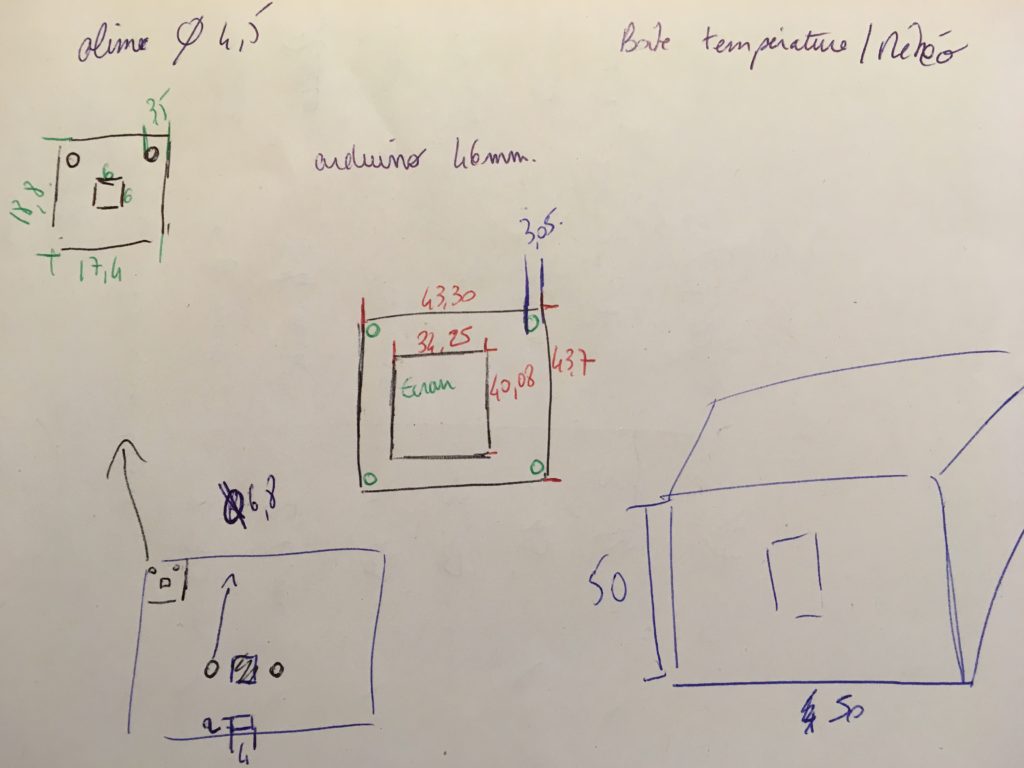 olime Ø 4,5
Boîte température / Météo
3,5
arduino 46mm.
6
6
18,8
17,4
3,05
43,30
34,25
43,7
Ecran
40,08
6,8
50
2
4
50